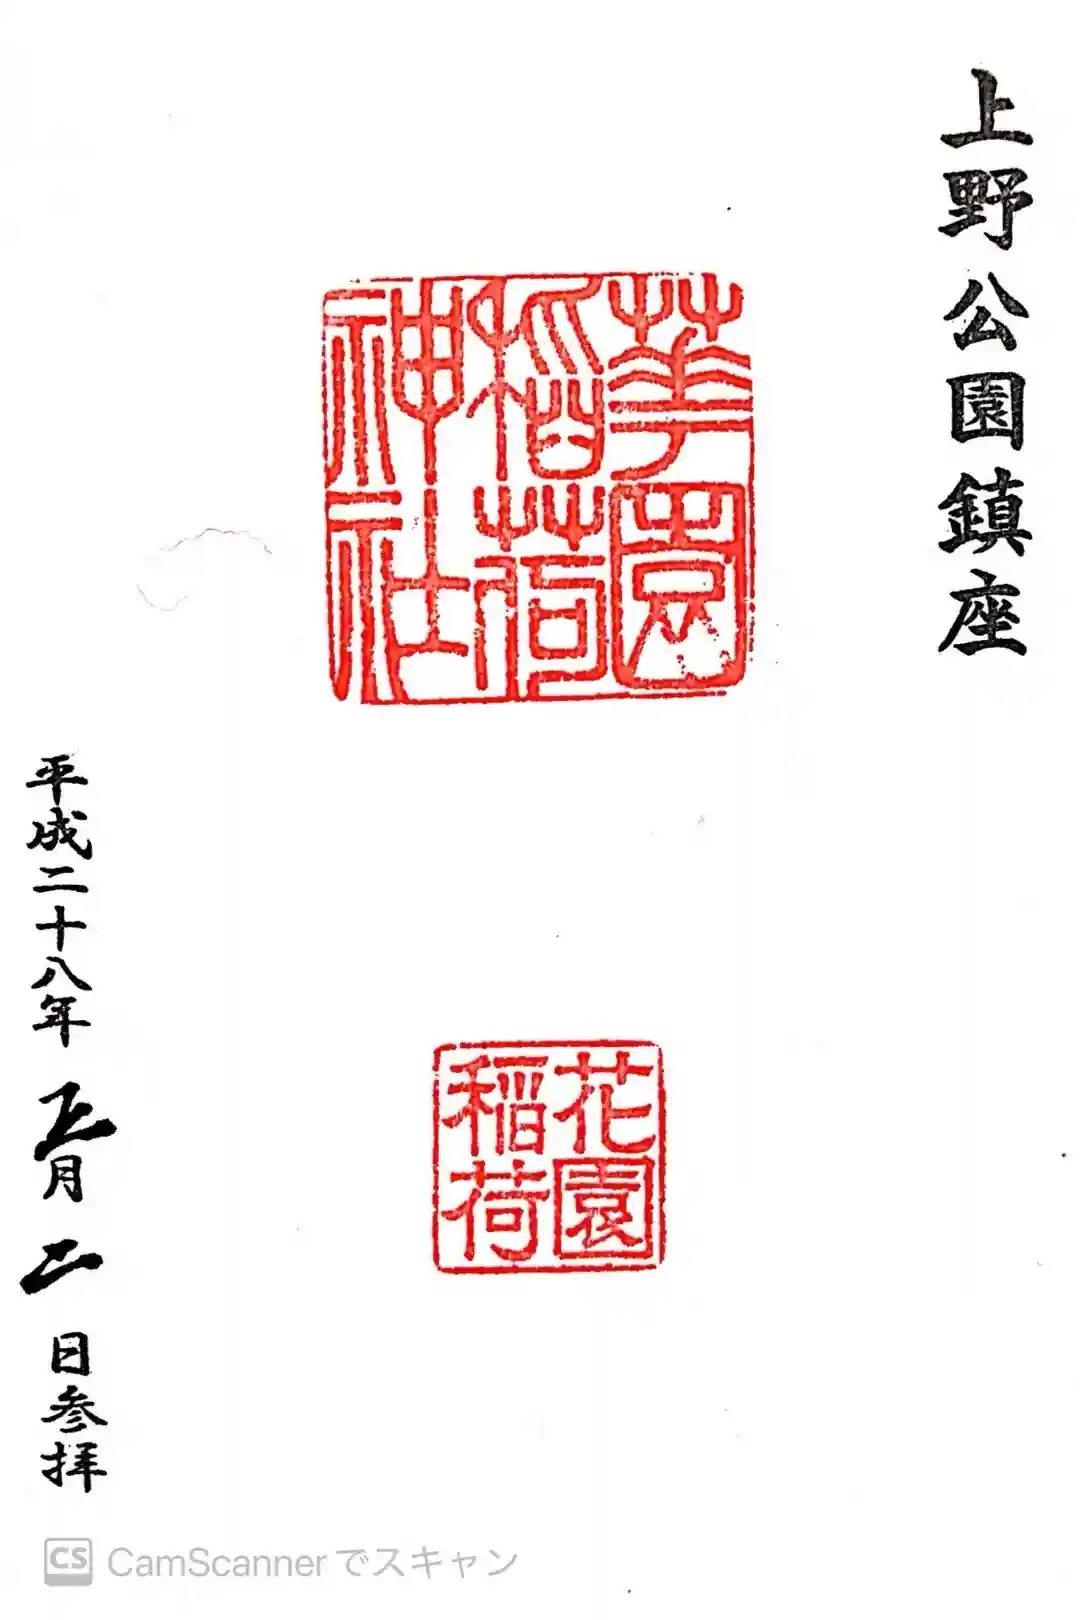 上野公園鎮座
華園
稲荷
神社
花園
稲荷
平成二十八年正月二日参拝
CS CamScannerでスキャン